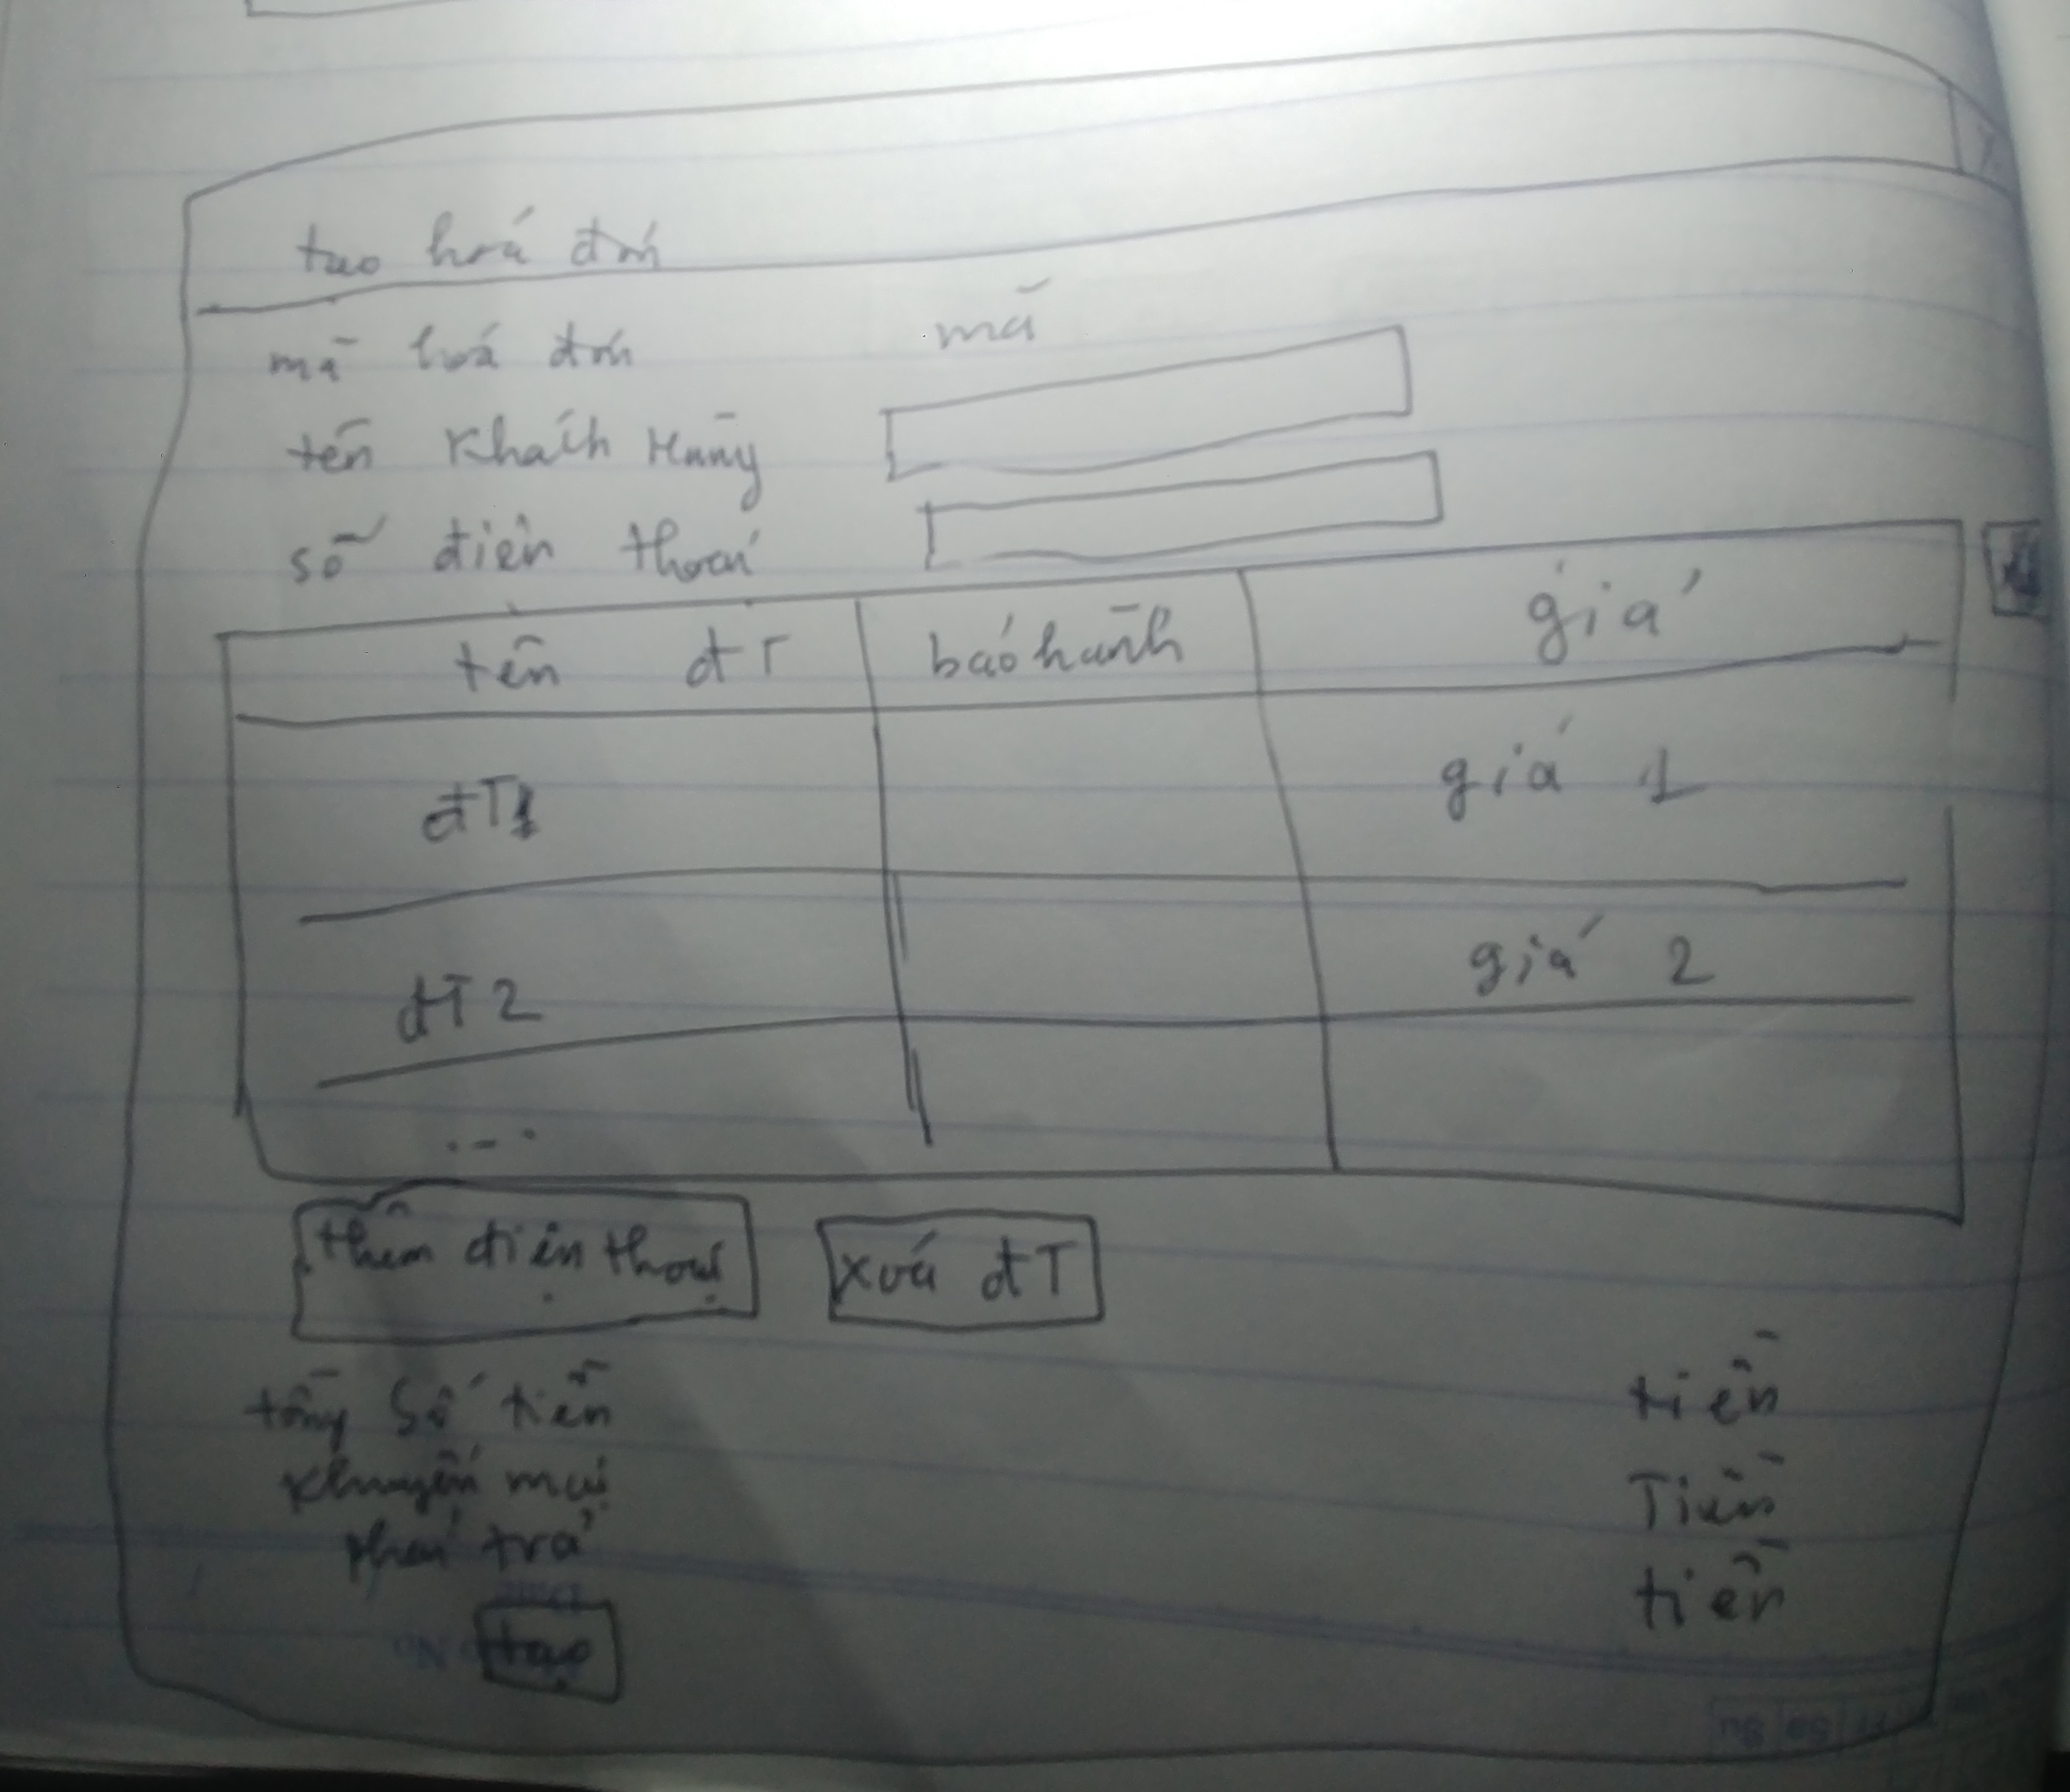 tạo hoá đơn
mã hoá đơn mã
tên Khách Hàng
số điện thoại
tên đT bảo hành giá
đT1 giá 1
đT2 giá 2
...
thêm điện thoại xoá đT
tổng số tiền tiền
khuyến mại Tiền
phải trả tiền
tạo